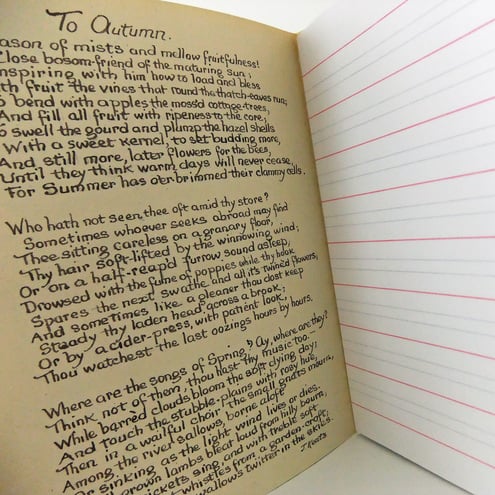 To Autumn.
ason of mists and mellow fruitfulness!
Close bosom-friend of the maturing sun;
nspiring with him how to load and bless
th fruit the vines that round the thatch-eaves run;
o bend with apples the moss'd cottage-trees,
And fill all fruit with ripeness to the core,
o swell the gourd and plump the hazel shells
With a sweet kernel; to set budding more,
And still more, later flowers for the bees,
Until they think warm days will never cease,
For Summer has o'er-brimmed their clammy cells.
Who hath not seen thee oft amid thy store?
Sometimes whoever seeks abroad may find
Thee sitting careless on a granary floor,
Thy hair soft-lifted by the winnowing wind;
Or on a half-reap'd furrow sound asleep,
Drowsed with the fume of poppies while thy hook
Spares the next swathe and all its twined flowers,
And sometimes like a gleaner thou dost keep
Steady thy laden head across a brook;
Or by a cider-press, with patient look,
Thou watchest the last oozings hours by hours.
Where are the songs of Spring? Ay, where are they?
Think not of them, thou hast thy music too.—
While barred clouds bloom the soft-dying day;
And touch the stubble-plains with rosy hue,
Then in a wailful choir the small gnats mourn,
Among the river sallows, borne aloft
Or sinking as the light wind lives or dies.
grown lambs bleat loud from hilly bourn,
ickets sing, and with treble soft
whistles from a garden-croft;
wallows twitter in the skies.
J Keats